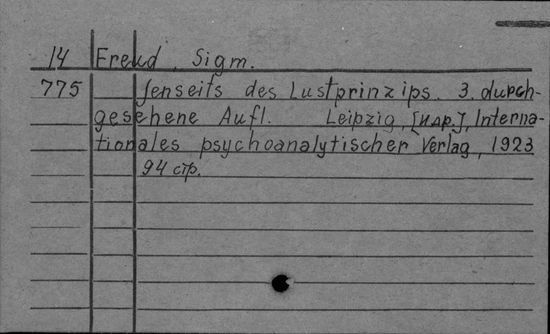 14 Freud, Sigm.
775 Jenseits des Lustprinzips. 3. durch-
gesehene Aufl. Leipzig, [и др.], Interna-
tionales psychoanalytischer Verlag, 1923
94 стр.